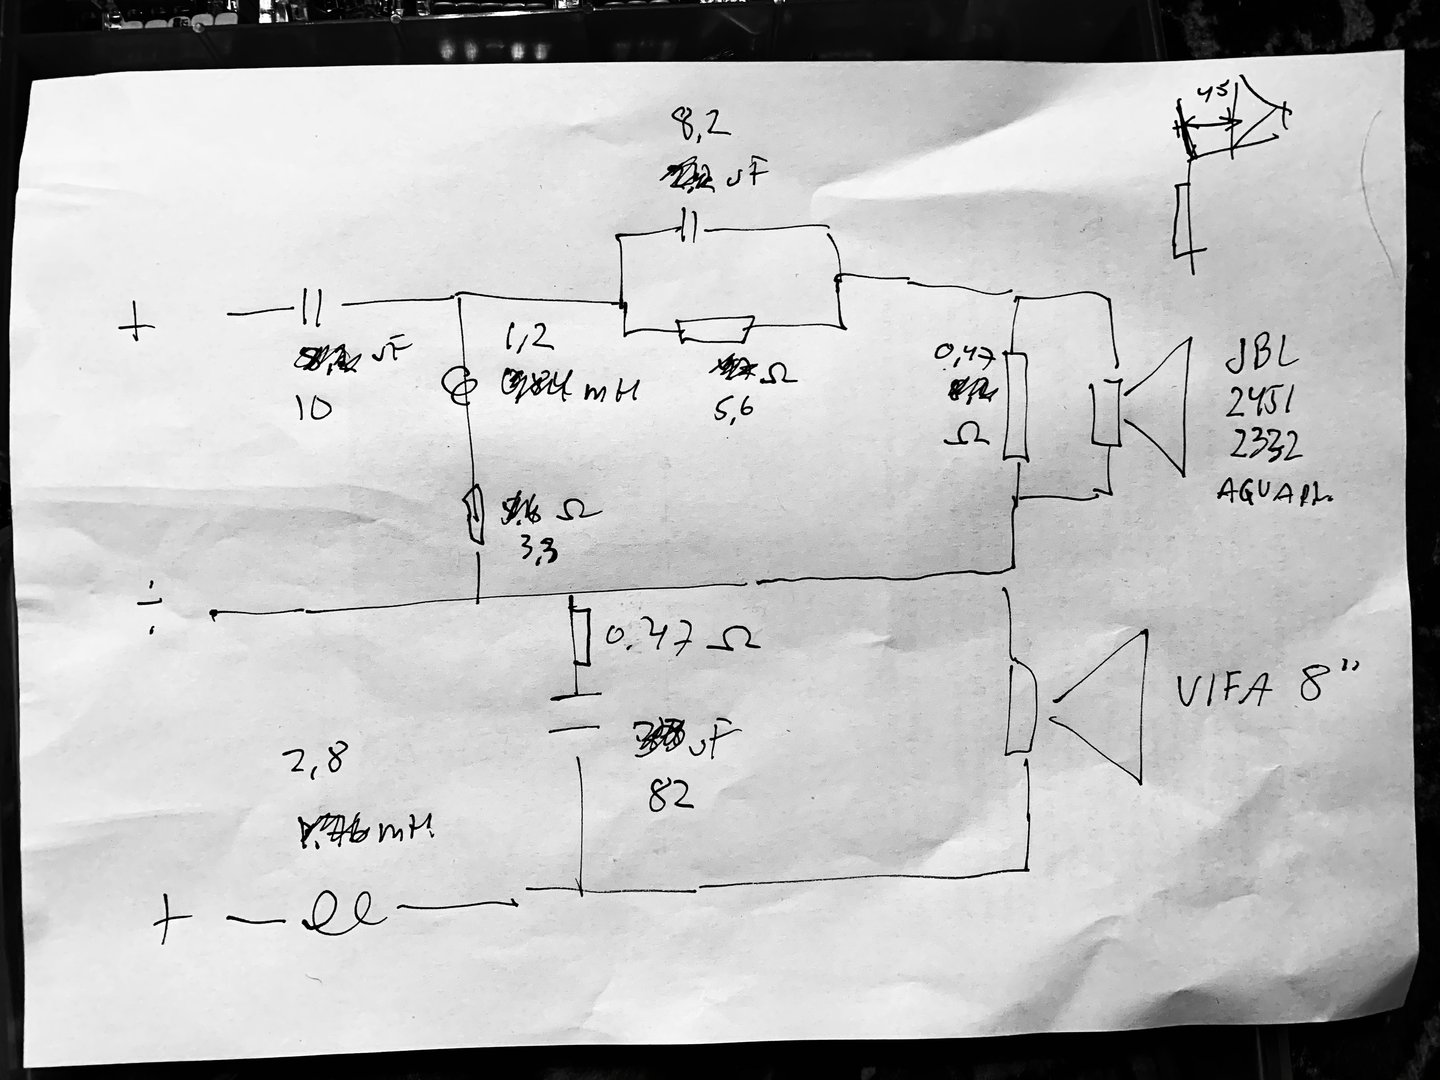 45
8,2
uF
+
uF
10
1,2
mH
Ω
5,6
0,47
Ω
JBL
2451
2332
AQUAPL.
Ω
3,3
÷
0.47 Ω
VIFA 8"
uF
82
2,8
mH
+